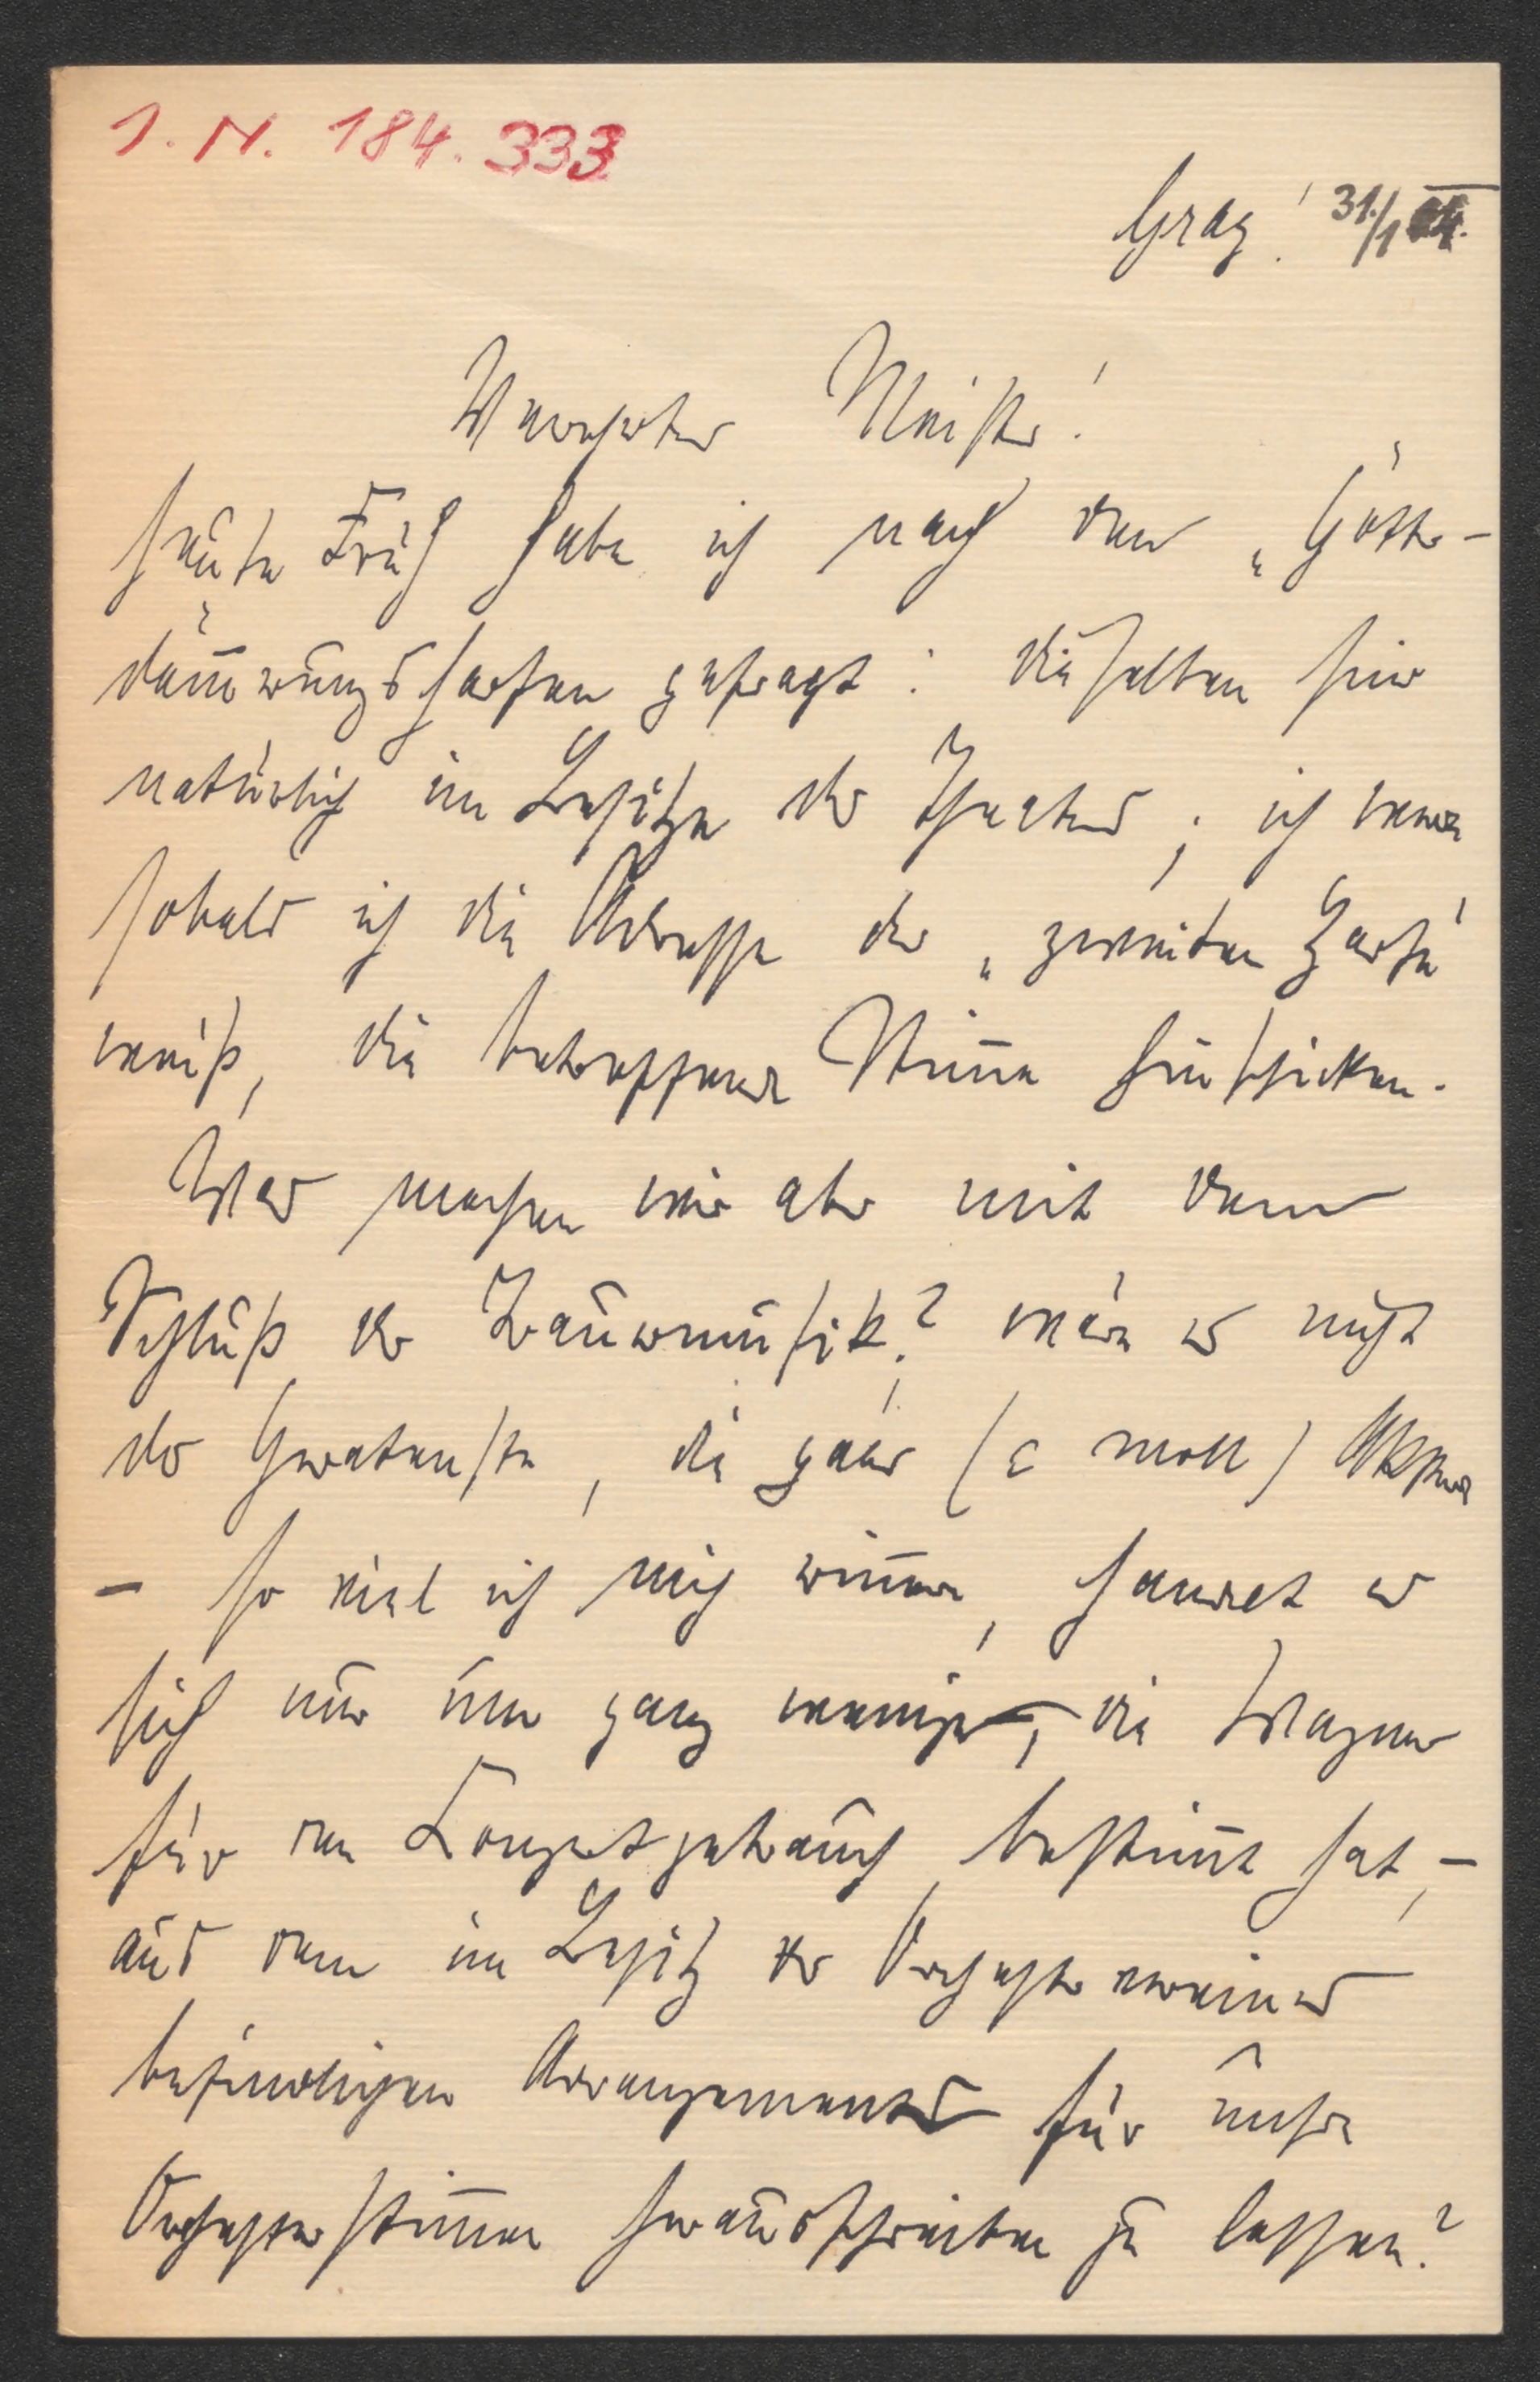 I. N. 184.333
Graz! 31./1
Verehrter Meister!
heute Früh habe ich nach den „Götter-
däm̄erungsharfen gefragt: dieselben sind
natürlich im Besitze des Theaters; ich werde
sobald ich die Adresse der „zweiten Harfe"
weiß, die betreffende Stim̄e hinschicken.
Was machen wir aber mit dem
Schluß der Trauermusik? wäre es nicht
das Geratenste, die paar (c moll) Akkorde
– so viel ich mich erin̄ere, handelt es
sich nur um ganz wenige, die Wagner
für den Konzertgebrauch bestim̄t hat, –
aus dem im Besitz des Orchestervereines
befindlichen Arrangements für unsere
Orchesterstim̄en herausschreiben zu lassen?